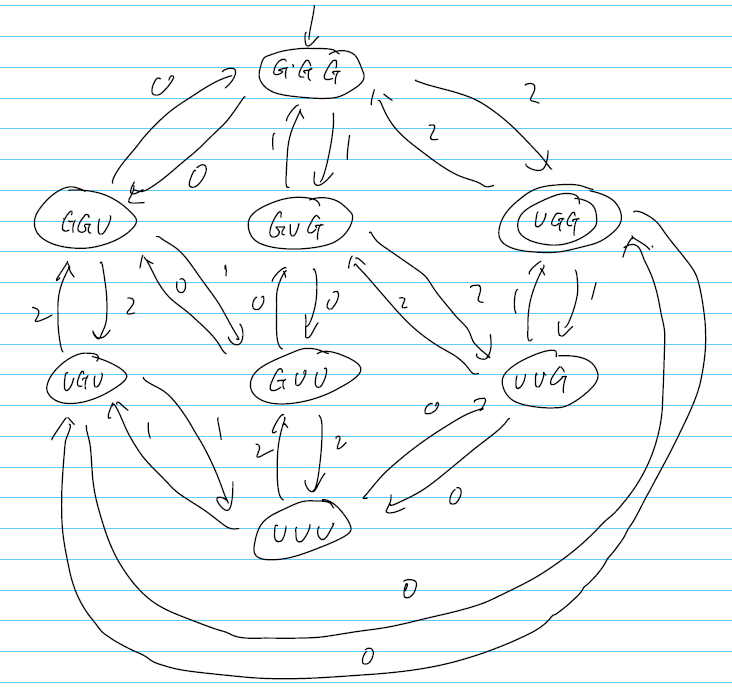 GGG
0 2
1 1 2
0
GGU GUG UGG
0 1 2
2 2 0 0 2 1 1
UGU GUU UUG
0
1 1 2 2
0
UUU
0
0